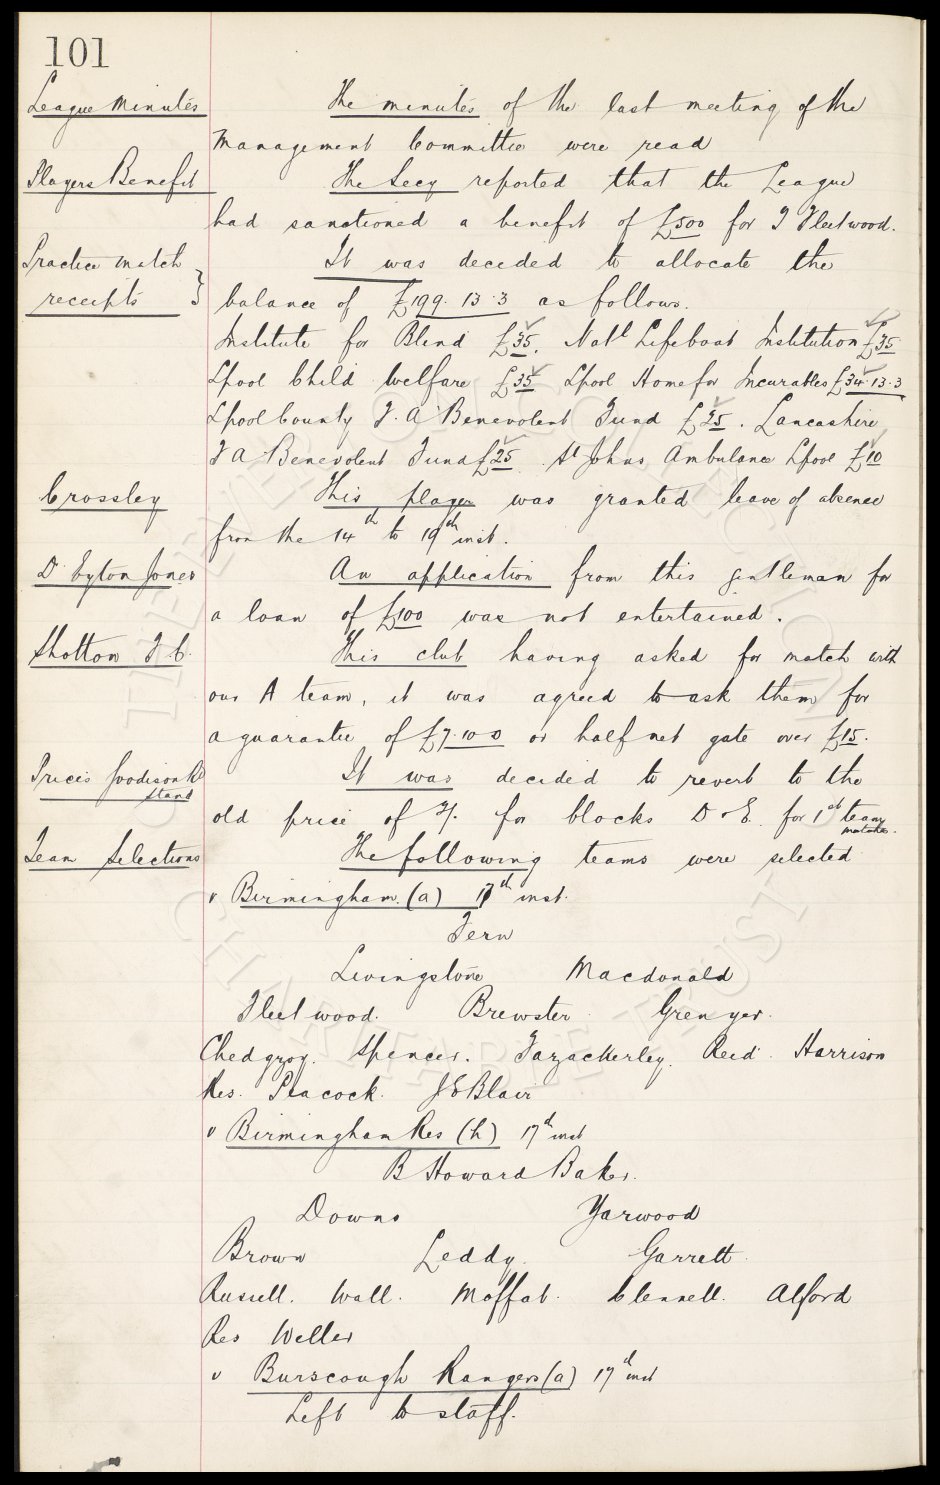 101
League Minutes The minutes of the last meeting of the
Management Committee were read
Players Benefit The Secy reported that the League
had sanctioned a benefit of £500 for T Fleetwood.
Practice match It was decided to allocate the
receipts } balance of £199.13.3 as follows.
Institute for Blind £35. Natl Lifeboat Institution £35
Lpool Child Welfare £35 Lpool Home for Incurables £34.13.3
Lpool County F.A Benevolent Fund £25. Lancashire
F A Benevolent Fund £25 St Johns Ambulance Lpool £10
Crossley This player was granted leave of absence
from the 14th to 19th inst.
D. Eyton Jones An application from this gentleman for
a loan of £100 was not entertained.
Shotton F C. This club having asked for match with
our A team, it was agreed to ask them for
a guarantee of £7.10.0 or half net gate over £15.
Prices Goodison Rd It was decided to revert to the
stand
old price of for blocks D & E. for 1st team
matches.
Team Selections The following teams were selected
v Birmingham (a) 17th inst.
Fern
Livingstone Macdonald
Fleetwood. Brewster. Grenyer.
Chedgzoy. Spencer. Fazackerley. Reid. Harrison
Res. Peacock. J E Blair
v Birmingham Res (h) 17th inst
B Howard Baker.
Downs Yarwood
Brown Leddy. Garrett.
Russell. Wall. Moffat. Clennell. Alford
Res Weller
v Burscough Rangers (a) 17th inst
Left to staff.
THE EVERTON COLLECTION
CHARITABLE TRUST